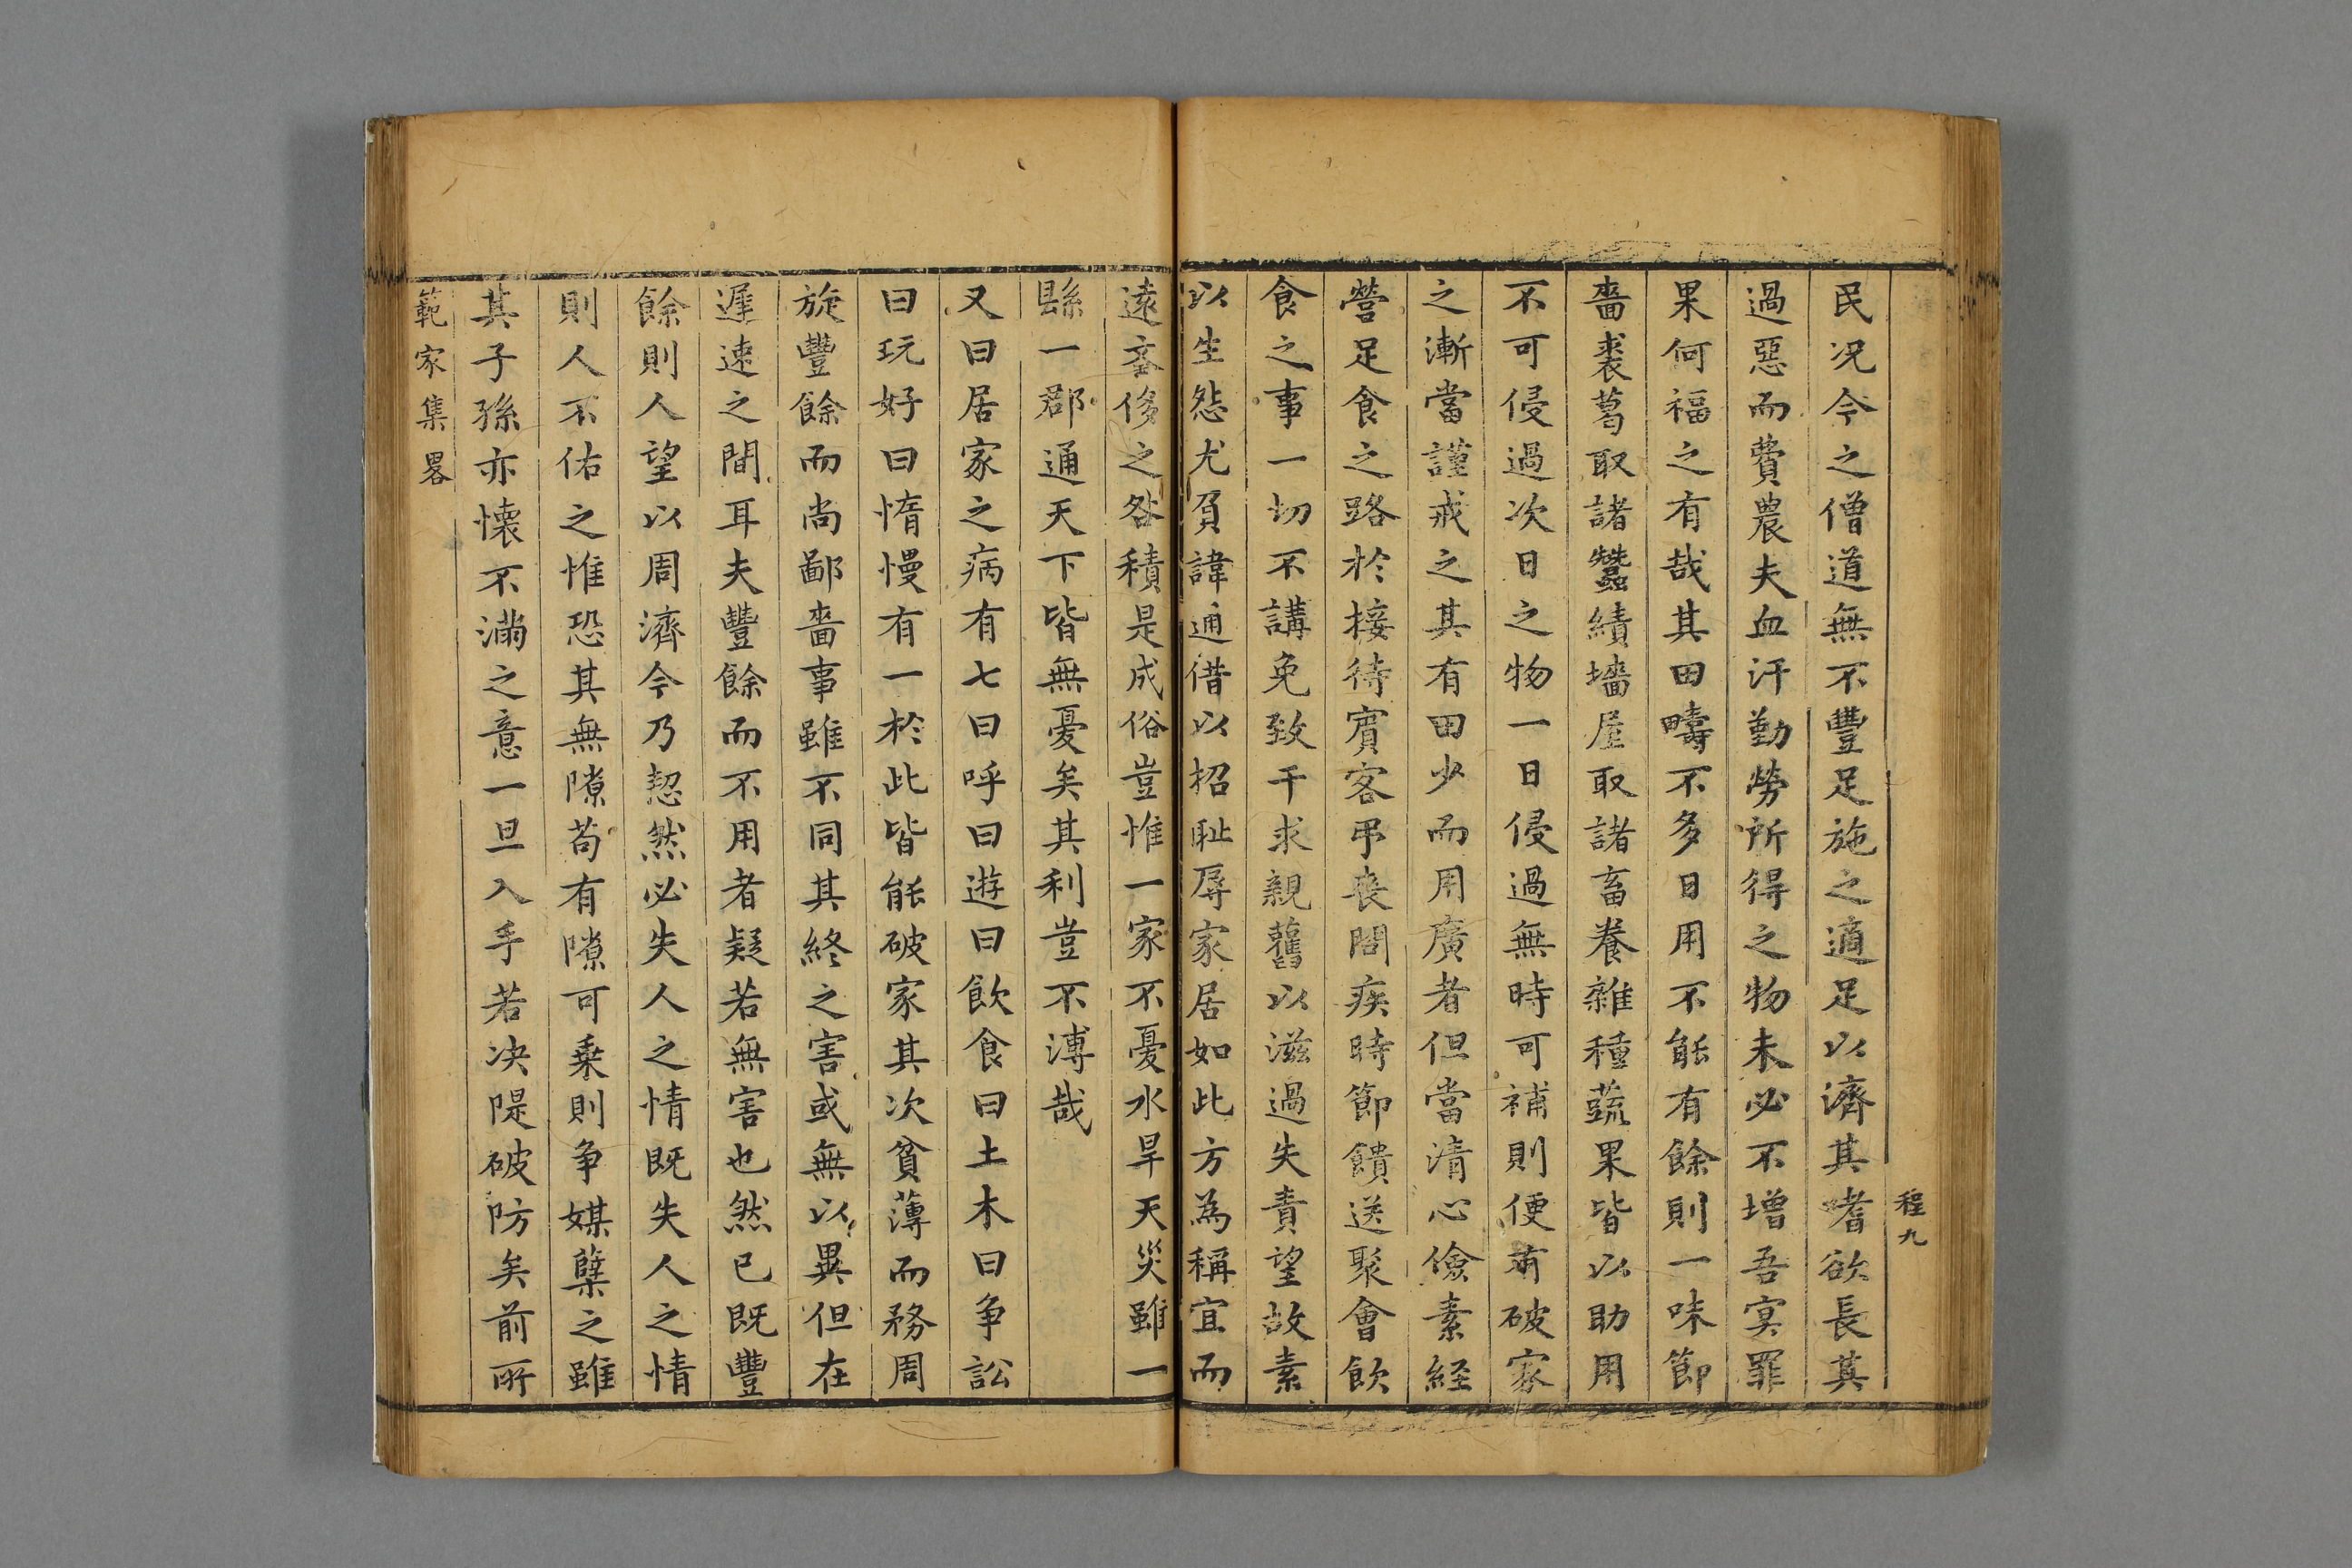 程九
民况今之僧道無不豐足施之適足以濟其嗜欲長其
過惡而費農夫血汗勤勞所得之物未必不增吾冥罪
果何福之有哉其田疇不多日用不能有餘則一味節
嗇裘葛取諸蠶績墻屋取諸畜養雜種蔬果皆以助用
不可侵過次日之物一日侵過無時可補則便有破家
之漸當謹戒之其有田少而用廣者但當清心儉素經
營足食之路於接待賓客弔喪問疾時節饋送聚會飲
食之事一切不講免致干求親舊以滋過失責望故素
以生怨尤負諱通借以招恥辱家居如此方為稱宜而
遠吝侈之咎積是成俗豈惟一家不憂水旱天災雖一
縣一郡通天下皆無憂矣其利豈不溥哉
又曰居家之病有七曰呼曰遊曰飲食曰土木曰争訟
曰玩好曰惰慢有一於此皆能破家其次貧薄而務周
旋豐餘而尚鄙嗇事雖不同其終之害或無以異但在
遲速之間耳夫豐餘而不用者疑若無害也然已既豐
餘則人望以周濟今乃恝然必失人之情既失人之情
則人不佑之惟恐其無隙苟有隙可乗則争媒孽之雖
其子孫亦懐不滿之意一旦入手若决隄破防矣前所
範家集畧